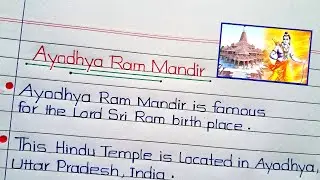 Ayodhya Ram Mandir
Ayodhya Ram Mandir is famous
for the Lord Sri Ram birth place.
This Hindu Temple is Located in Ayodhya,
Uttar Pradesh, India.